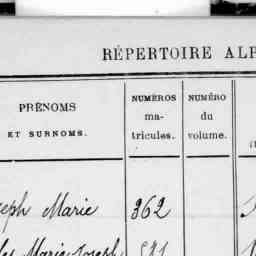 RÉPERTOIRE ALP
PRÉNOMS
ET SURNOMS.
NUMÉROS
ma-
tricules.
NUMÉRO
du
volume.
seph Marie 362
Marie Joseph